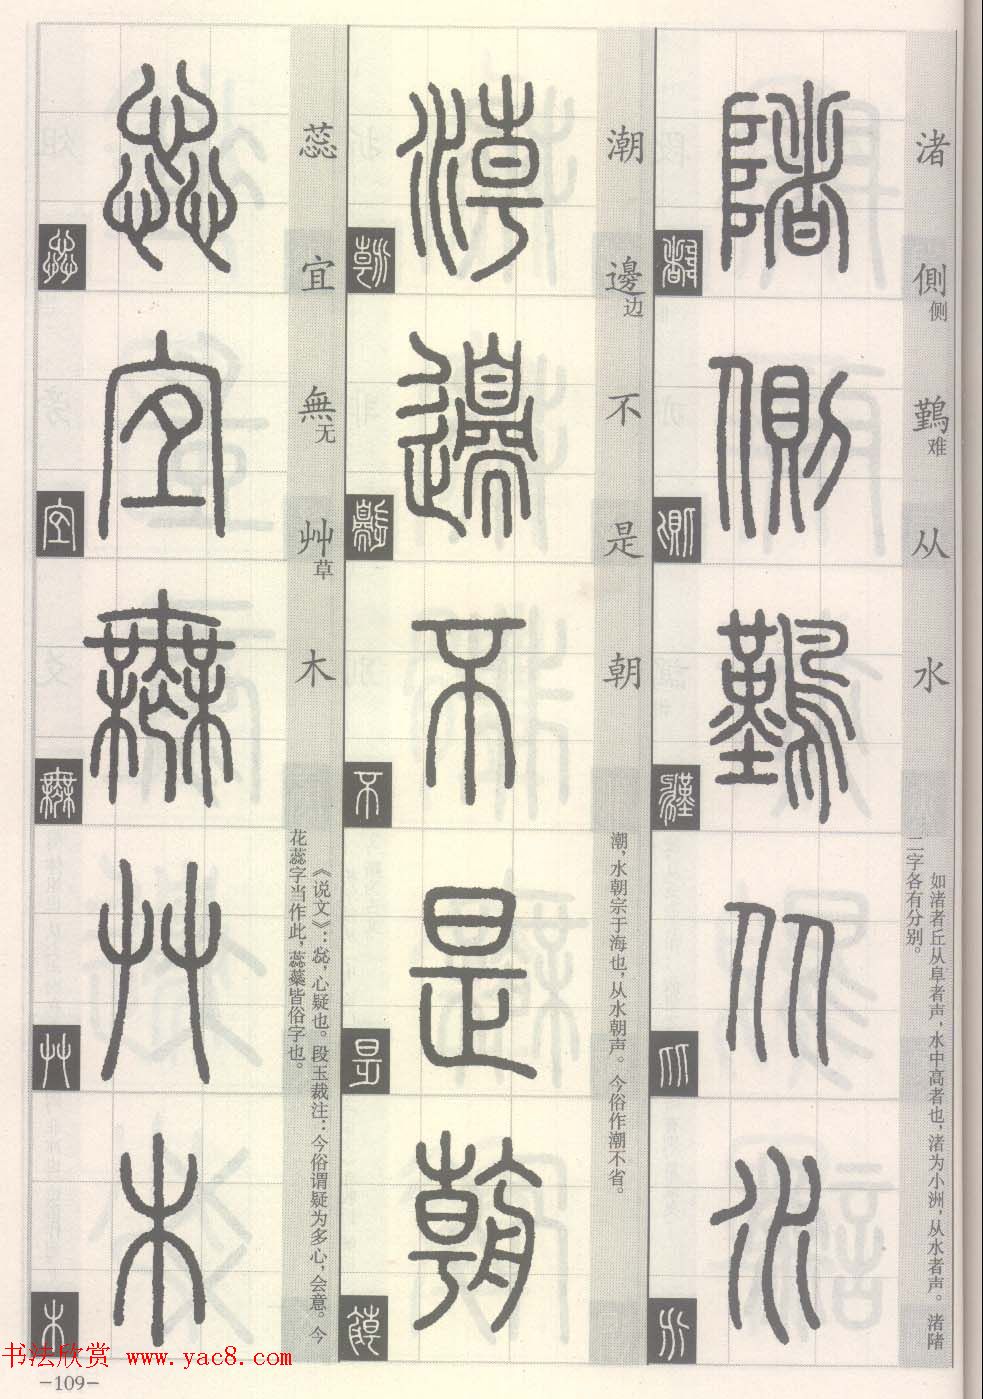 渚
側侧
鷬难
从
水
如渚者丘从阜者声,水中高者也,渚为小洲,从水者声。渚陼
二字各有分别。
潮
邊边
不
是
朝
潮,水朝宗于海也,从水朝声。今俗作潮不省。
蕊
宜
無无
艸草
木
《说文》:惢,心疑也。段玉裁注:今俗谓疑为多心,会意。今
花蕊字当作此,蕊蘂皆俗字也。
书法欣赏 www.yac8.com
-109-